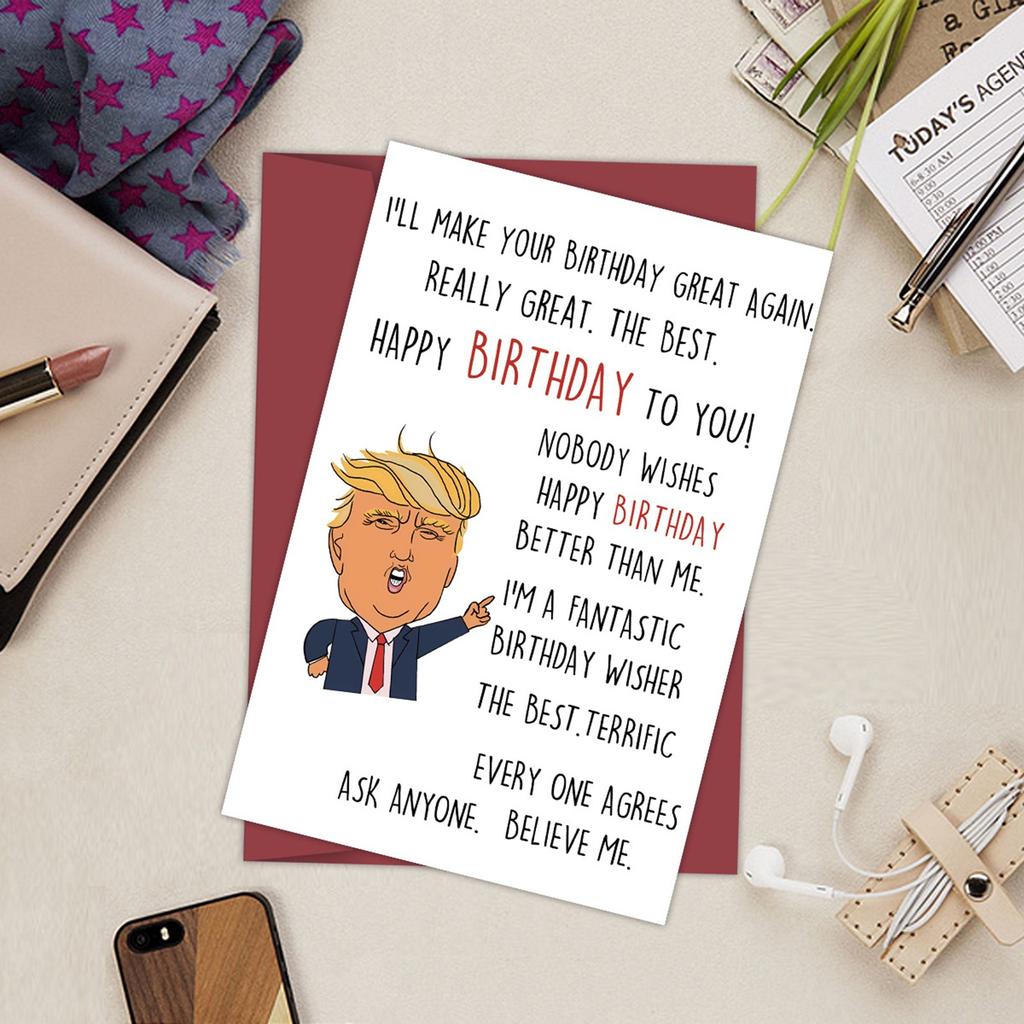 I'LL MAKE YOUR BIRTHDAY GREAT AGAIN.
REALLY GREAT. THE BEST.
HAPPY BIRTHDAY TO YOU!
NOBODY WISHES
HAPPY BIRTHDAY
BETTER THAN ME.
I'M A FANTASTIC
BIRTHDAY WISHER
THE BEST.TERRIFIC
EVERY ONE AGREES
ASK ANYONE. BELIEVE ME.
a GIA
TODAY'S AGEN
6-8:30 AM
9:00
9:30
10:00
12:00 PM
12:30
1:00
1:30
2:00
2:30
3:00